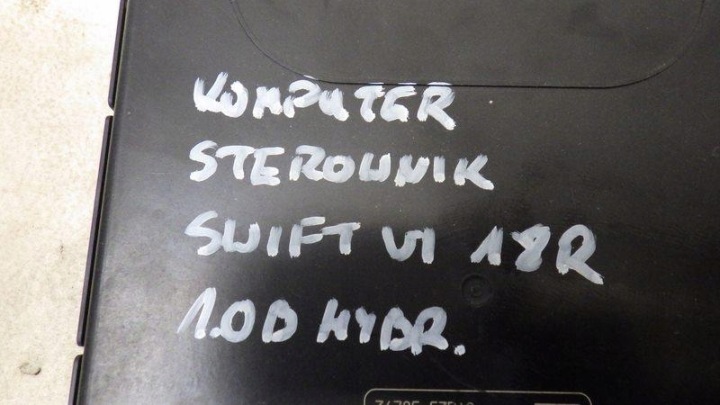 KOMPUTER
STEROWNIK
SWIFT VI 18R
1.0B HYBR.